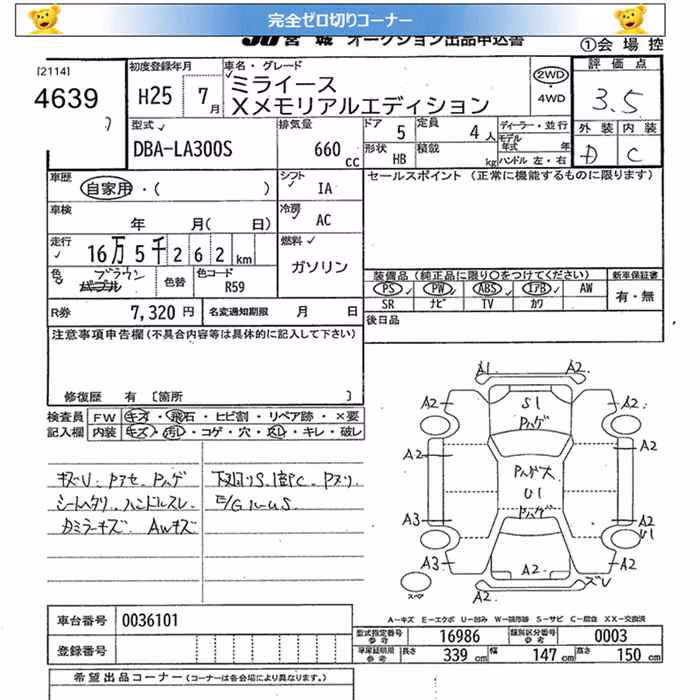 完全ゼロ切りコーナー
JU 宮城 オークション出品申込書
①会場控
[2114]
4639
初度登録年月
H25 7月
車名・グレード
ミライース
Xメモリアルエディション
2WD
4WD
評価点
3.5
外装 内装
D C
型式
DBA-LA300S
排気量
660 cc
ドア 5
定員 4人
形状 HB
積載 kg
ディーラー・並行
モデル年式 年
ハンドル 左・右
車歴
自家用・( )
シフト
IA
車検
年 月( 日)
冷房
AC
走行
16万5千262km
燃料
ガソリン
色
ブラウン
色替
色コード
R59
R券
7,320円
名変通知期限 月 日
セールスポイント (正常に機能するものに限ります)
装備品 (純正品に限り○をつけてください)
新車保証書
PS PW ABS エアB AW
SR ナビ TV カワ
有・無
後日品
注意事項申告欄(不具合内容等は具体的に記入して下さい)
修復歴 有 [箇所 ]
検査員 FW キズ・飛石・ヒビ割・リペア跡・×要
記入欄 内装 キズ・汚レ・コゲ・穴・スレ・キレ・破レ
キズU Pアセ Pハゲ
シートヘタリ ハンドルスレ
Awキズ
A1 A2
A2 A2
S1
Pハゲ
A2 A2
Pハゲ大
U1
Pハゲ
A3 A2
U1
A3 A2
A2
A2 ズレ
スペア
A-キズ E-エクボ U-凹み W-補修跡 S-サビ C-腐食 XX-交換済
車台番号 0036101
登録番号
型式指定番号 参考 16986
類別区分番号 参考 0003
車両証明用 参考 長さ 339cm 幅 147cm 高さ 150cm
希望出品コーナー (コーナーは各会場により異なります。)